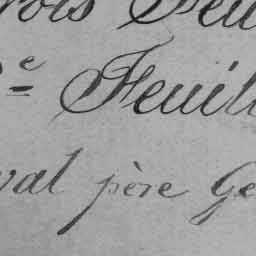 rois Feu
2e Feuill
val père Ge